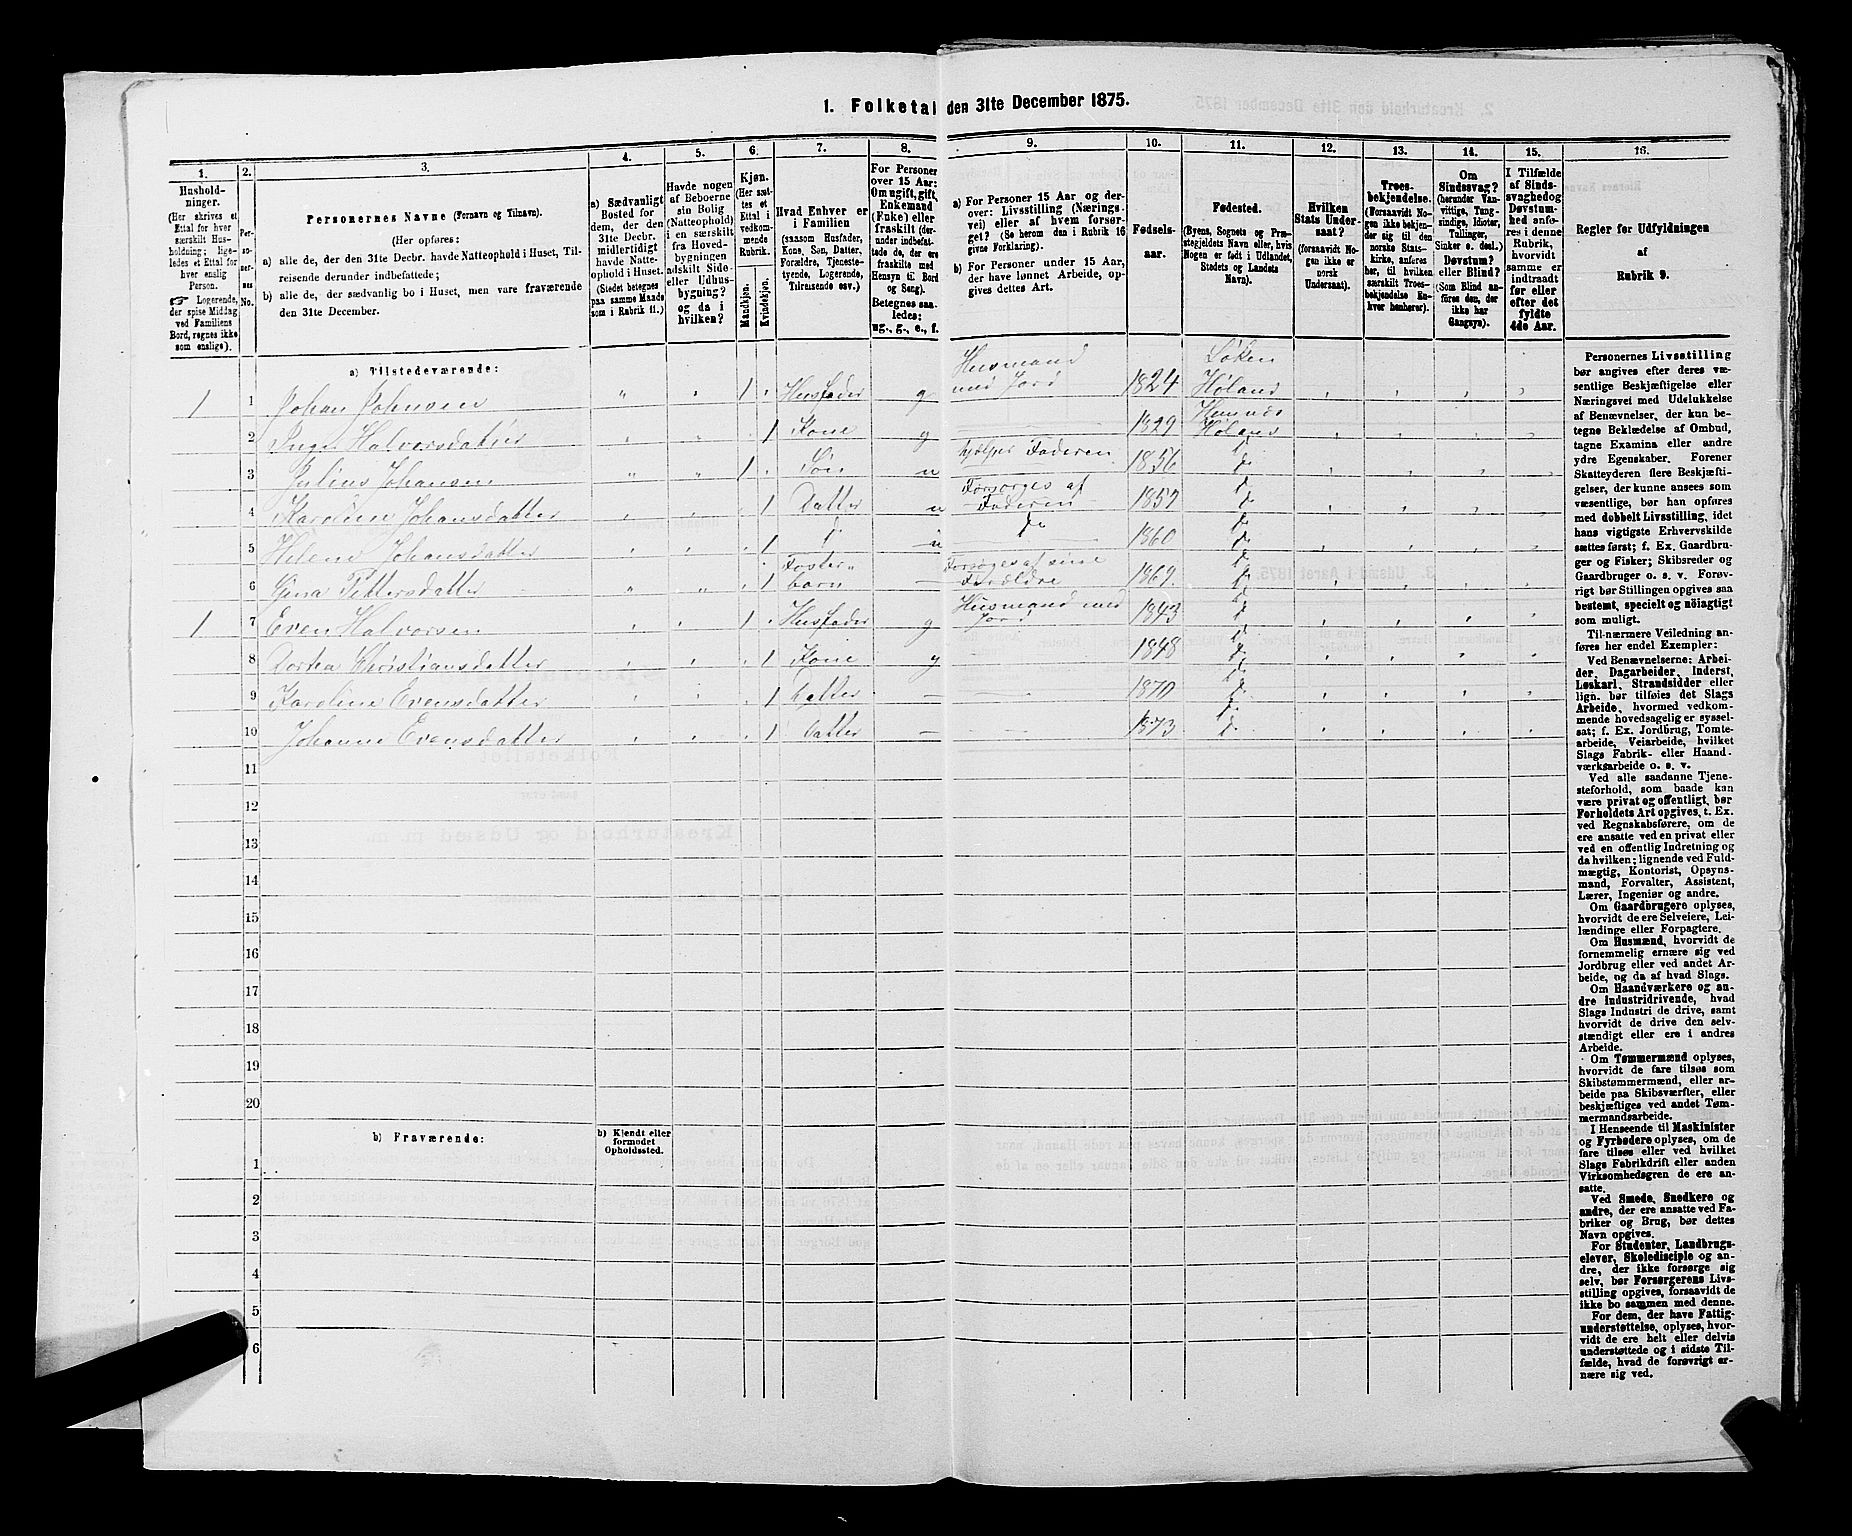 1. Folketal den 31te December 1875.
1.
2.
3.
4.
5.
6.
7.
8.
9.
10.
11.
12.
13.
14.
15.
16.
Hushold-
ninger.
(Her skrives et
Ettal for hver
særskilt Hus-
holdning; lige-
ledes et Ettal for
hver enslig
Person.
☞ Logerende,
der spise Middag
ved Familiens
Bord, regnes ikke
som enslige).
Per-
so-
ner-
nes
No.
Personernes Navne (Fornavn og Tilnavn).
(Her opføres:
a) alle de, der den 31te Decbr. havde Natteophold i Huset, Til-
reisende derunder indbefattede;
b) alle de, der sædvanlig bo i Huset, men vare fraværende
den 31te December.
a) Sædvanligt
Bosted for
dem, der den
31te Decbr.
midlertidigt
havde Natte-
ophold i Huset.
(Stedet betegnes
paa samme Maade
som i Rubrik 11.)
Havde nogen
af Beboerne
sin Bolig
(Natteophold)
i en særskilt
fra Hoved-
bygningen
adskilt Side-
eller Udhus-
bygning?
og da i
hvilken?
Kjøn.
(Her sæt-
tes et
Ettal i
vedkom-
mende
Rubrik.
Mandkjøn.
Kvindekjøn.
Hvad Enhver er
i Familien
(saasom Husfader,
Kone, Søn, Datter,
Forældre, Tjeneste-
tyende, Logerende,
Tilreisende osv.)
For Personer
over 15 Aar:
Om ugift, gift,
Enkemand
(Enke) eller
fraskilt (der-
under indbefat-
tede de, der ere
fraskilte med
Hensyn til Bord
og Seng).
Betegnes saa-
ledes:
ug., g., e., f.
a) For Personer 15 Aar og der-
over: Livsstilling (Nærings-
vei) eller af hvem forsør-
get? (Se herom den i Rubrik 16
givne Forklaring).
b) For Personer under 15 Aar,
der have lønnet Arbeide, op-
gives dettes Art.
Fødsels-
aar.
Fødested.
(Byens, Sognets og Præ-
stegjeldets Navn eller, hvis
Nogen er født i Udlandet,
Stedets og Landets
Navn).
Hvilken
Stats Under-
saat?
(forsaavidt No-
gen ikke er
norsk
Undersaat).
Troes-
bekjendelse.
(Forsaavidt No-
gen ikke bekjen-
der sig til den
norske Stats-
kirke, anføres
her, til hvilken
særskilt Troes-
bekjendelse En-
hver henhører).
Om
Sindssvag?
(herunder Van-
vittige, Tung-
sindige, Idioter,
Tullinger,
Sinker o. desl.)
Døvstum?
eller Blind?
(Som Blind an-
føres den, der
ikke har
Gangsyn).
I Tilfælde
af Sinds-
svaghed og
Døvstum-
hed anfø-
res i denne
Rubrik,
hvorvidt
samme er
indtraadt
før eller
efter det
fyldte
4de Aar.
Regler for Udfyldningen
af
Rubrik 9.
a) Tilstedeværende:
1 1 Johan Johnsen " 1 Husfader g Husmand med Jord 1824 Løken Høland
2 Inger Halvorsdatter 1 Kone g 1829 Hemnæs Høland
3 Julius Johansen " " 1 Søn u hjelper Faderen 1856 do
4 Karoline Johansdatter 1 Datter u Forsørges af Faderen 1857 do
5 Helene Johansdatter 1 do u do 1860 do
6 Gina Pettersdatter " " 1 Foster- barn — Forsørges af sine Forældre 1869 do
1 7 Even Halvorsen 1 Husfader g Husmand med Jord 1843 do
8 Dorthea Christiansdatter 1 Kone g 1848 do
9 Karoline Evensdatter 1 Datter — 1870 do
10 Johanne Evensdatter 1 Datter — 1873 do
11
12
13
14
15
16
17
18
19
20
b) Fraværende:
b) Kjendt eller
formodet
Opholdssted.
1
2
3
4
5
6
Personernes Livsstilling
bør angives efter deres væ-
sentlige Beskjæftigelse eller
Næringsvei med Udelukkelse
af Benævnelser, der kun be-
tegne Beklædelse af Ombud,
tagne Examina eller andre
ydre Egenskaber. Forener
Skatteyderen flere Beskjæfti-
gelser, der kunne ansees som
væsentlige, bør han opføres
med dobbelt Livsstilling, idet
hans vigtigste Erhvervskilde
sættes først; f. Ex. Gaardbru-
ger og Fisker; Skibsreder og
Gaardbruger o. s. v. Forøv-
rigt bør Stillingen opgives saa
bestemt, specielt og nöiagtigt
som muligt.
Til nærmere Veiledning an-
føres her endel Exempler:
Ved Benævnelserne: Arbei-
der, Dagarbeider, Inderst,
Løskarl, Strandsidder eller
lign. bør tilføies det Slags
Arbeide, hvormed vedkom-
mende hovedsagelig er syssel-
sat; f. Ex. Jordbrug, Tomte-
arbeide, Veiarbeide, hvilket
Slags Fabrik- eller Haand-
værksarbeide o. s. v.
Ved alle saadanne Tjene-
steforhold, som baade kan
være privat og offentligt, bør
Forholdets Art opgives, t. Ex.
ved Regnskabsførere, om de
ere ansatte ved en privat eller
ved en offentlig Indretning og
da hvilken; lignende ved Fuld-
mægtig, Kontorist, Opsyns-
mand, Forvalter, Assistent,
Lærer, Ingeniør og andre.
Om Gaardbrugere oplyses,
hvorvidt de ere Selveiere, Lei-
lændinge eller Forpagtere.
Om Husmænd, hvorvidt de
fornemmelig ernære sig ved
Jordbrug eller ved andet Ar-
beide, og da af hvad Slags.
Om Haandværkere og an-
dre Industridrivende, hvad
Slags Industri de drive, samt
hvorvidt de drive den selv-
stændigt eller ere i andres
Arbeide.
Om Tømmermænd oplyses,
hvorvidt de fare tilsøs som
Skibstømmermænd, eller ar-
beide paa Skibsværfter, eller
beskjæftiges ved andet Tøm-
mermandsarbeide.
I Henseende til Maskinister
og Fyrbødere oplyses, om de
fare tilsøs eller ved hvilket
Slags Fabrikdrift eller anden
Virksomhedsgren de ere an-
satte.
Ved Smede, Snedkere og
andre, der ere ansatte ved Fa-
briker og Brug, bør dettes
Navn opgives.
For Studenter, Landbrugs-
elever, Skoledisciple og an-
dre, der ikke forsørge sig
selv, bør Forsørgerens Livs-
stilling opgives, forsaavidt de
ikke bo sammen med denne.
For dem, der have Fattig-
understøttelse, oplyses, hvor-
vidt de ere helt eller delvis
understøttede og i sidste Til-
fælde, hvad de forøvrigt er-
nære sig ved.